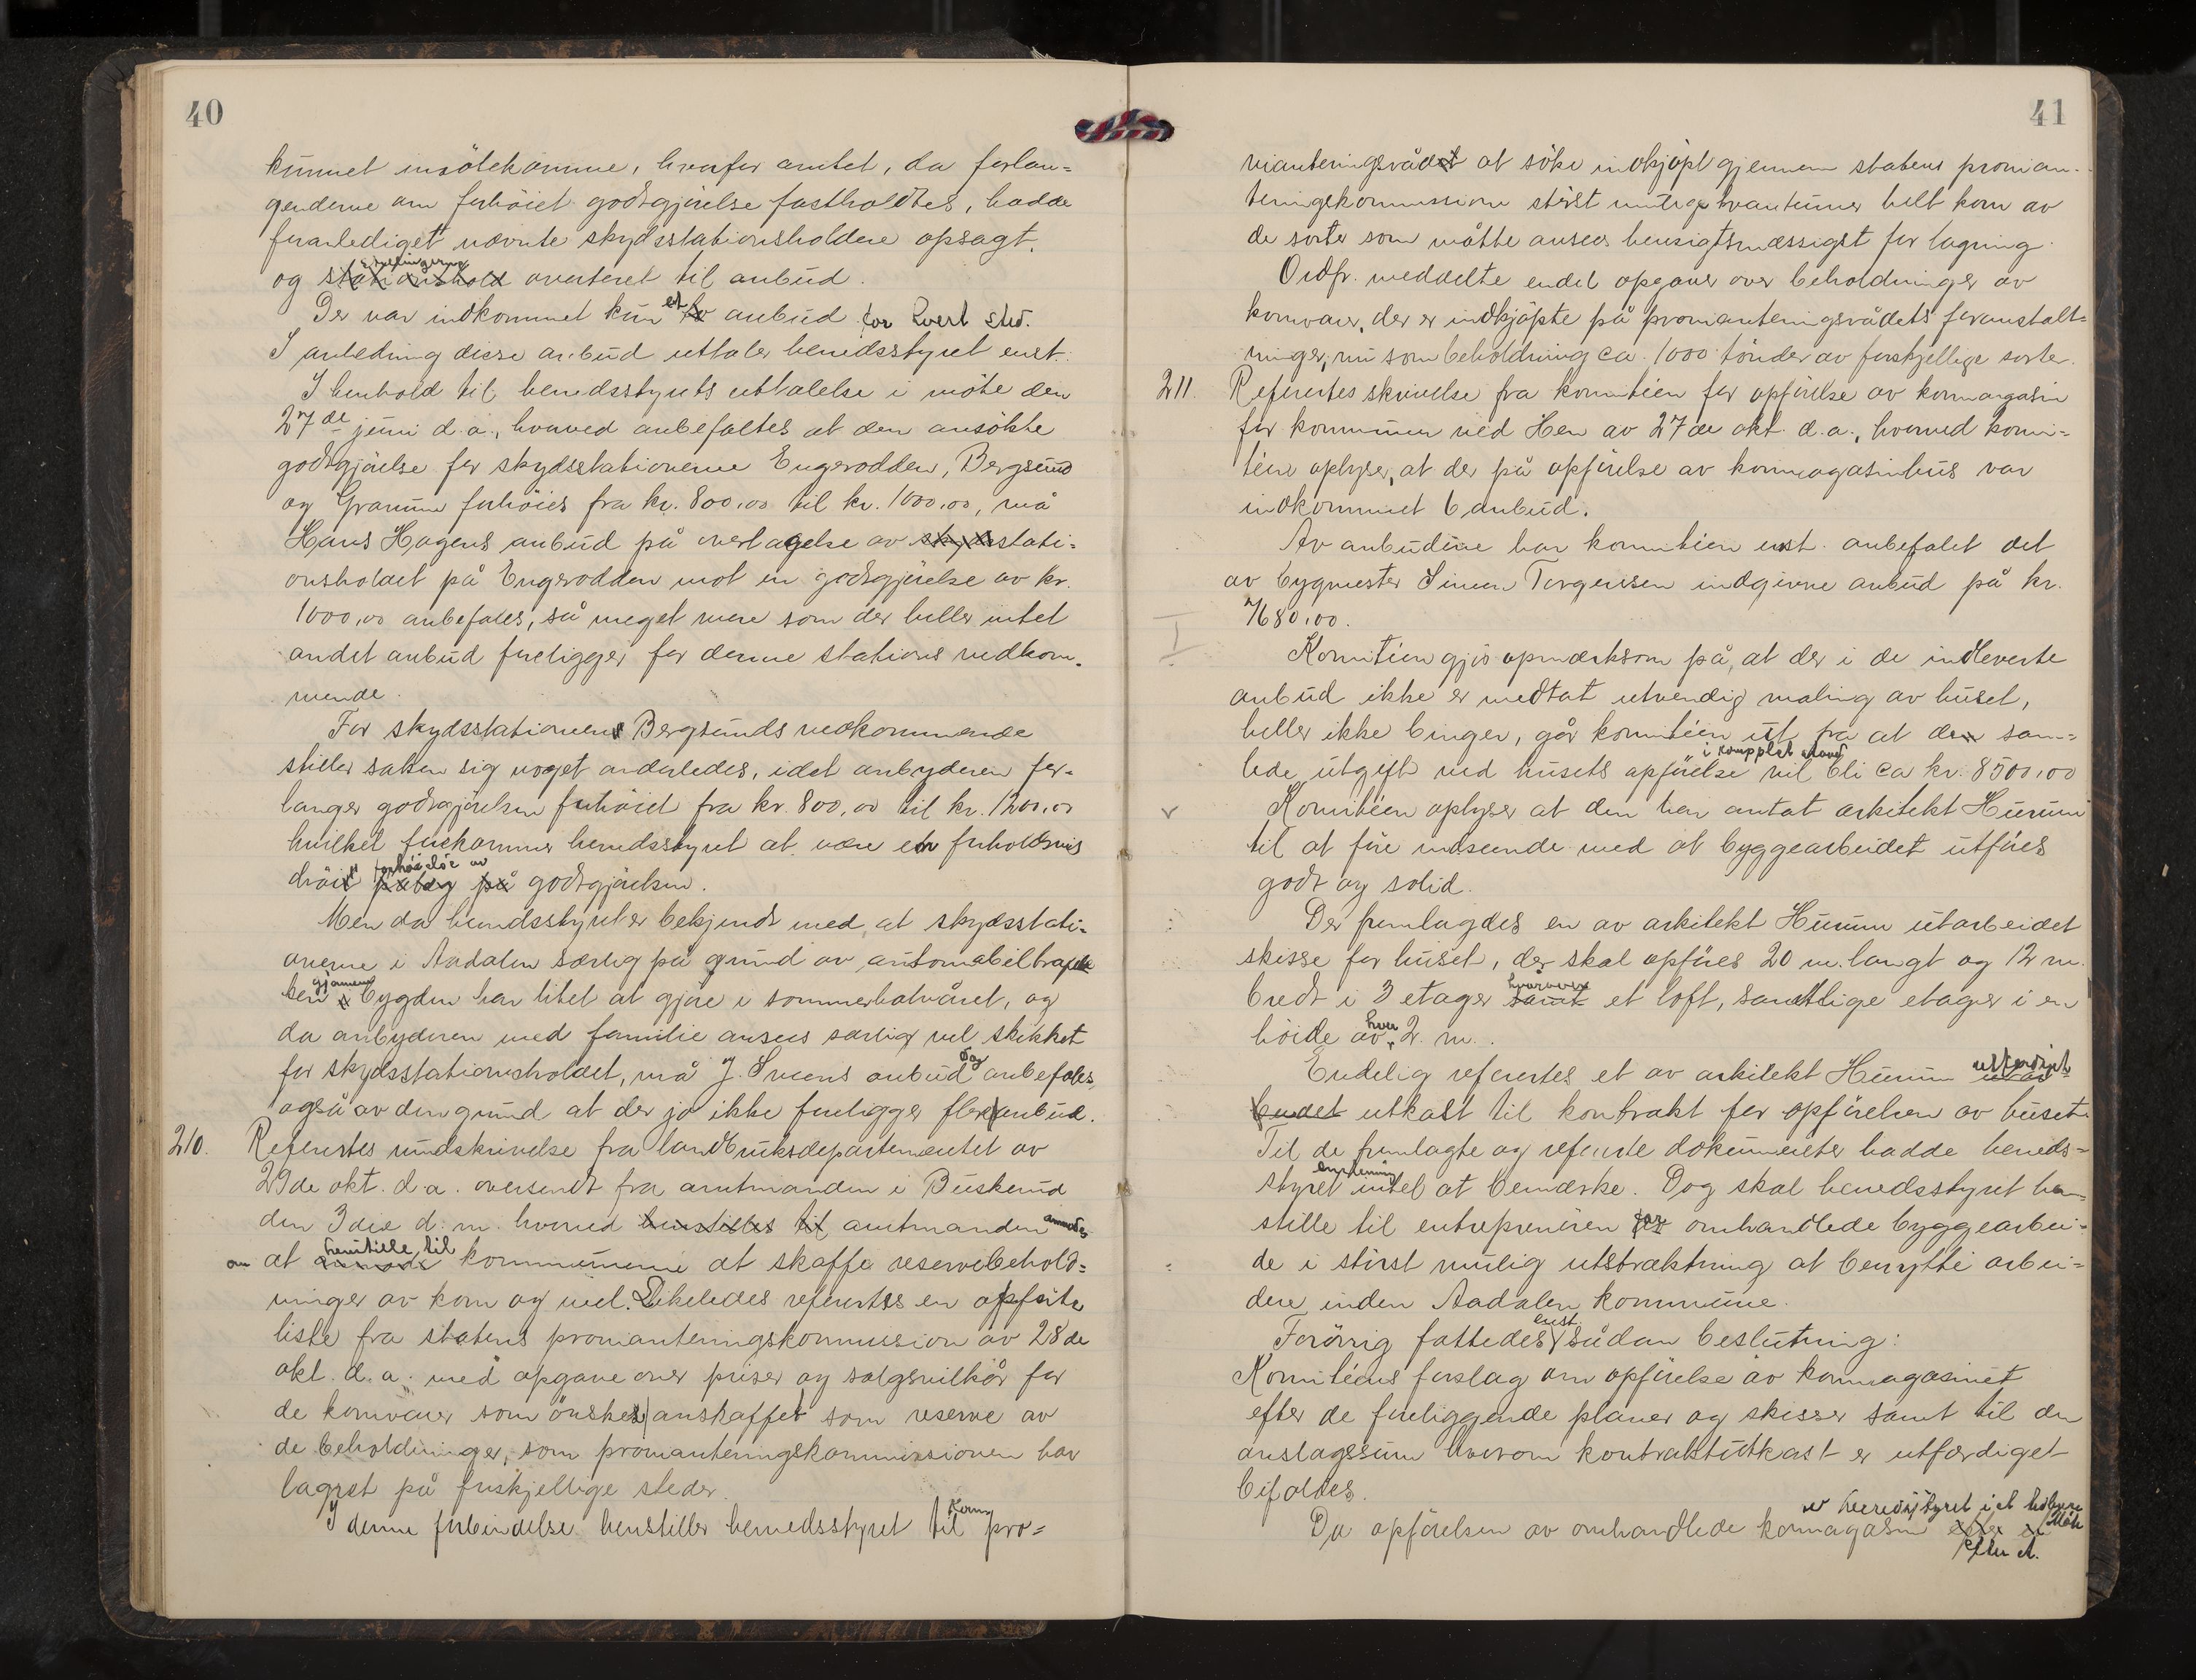 40
kunnet imøtekomme, hvorfor amtet, da forlan=
genderne om forhöiet godtgjörelse fastholdtes, hadde
foranlediget nævnte skydsstationsholdere opsagt,
og stationshold averteret til anbud.
Der var indkommet kun et anbud for hvert sted.
I anledning disse anbud uttaler herredsstyret enst.:
I henhold til herredsstyrets uttalelse i möte den
27de juni d.a., hvorved anbefaltes at den ansökte
godtgjörelse for skydsstationerne Engerodden, Bergsund
og Granum forhöies fra kr. 800,00 til kr. 1000,00, må
Hans Hagens anbud på overtagelse av skydsstati=
onsholdet på Engerodden mot en godtgjörelse av kr.
1000,00 anbefales, så meget mere som der heller intet
andet anbud foreligger for denne stations vedkom=
mende.
For skydsstationen Bergsunds vedkommende
stiller saken sig noget anderledes, idet anbyderen for=
langer godtgjörelsen forhöiet fra kr. 800,00 til kr. 1200,00
hvilket forekommer herredsstyret at være en forholdsvis
dröi forhöielse av pålæg på godtgjörelsen.
Men da herredsstyret er bekjendt med, at skydsstati=
onerne i Aadalen særlig på grund av automobiltrafik=
ken gjennem bygden har litet at gjöre i sommerhalvåret, og
da anbyderen med familie ansees særlig vel skikket
for skydsstationsholdet, må J. Sveens anbud og anbefales,
også av den grund at der jo ikke foreligger flere anbud.
210. Refertes rundskrivelse fra landbruksdepartementet av
29de okt. d.a. oversendt fra amtmanden i Buskerud
den 3die d.m. hvorved henstilles til amtmanden anmodes
om at henstille til kommunerne at skaffe reservebehold=
ninger av korn og mel. Likeledes refertes en opförte
liste fra statens provianteringskommission av 28de
okt. d.a. med opgave over priser og salgsvilkår for
de kornvarer som önskes anskaffet som reserve av
de beholdninger, som provianteringskommissionen har
lagret på forskjellige steder.
I denne forbindelse henstiller herredsstyret til komm pro=
41
vianteringsrådet at söke indkjöpt gjennem statens provian=
teringskommission störst mulige kvantumer helt korn av
de sorter som måtte ansees hensigtsmæssigst for lagring.
Ordf. meddelte endel opgaver over beholdninger av
kornvarer, der er indkjöpte på provianteringsrådets foranstalt=
ninger, nu som beholdning ca. 1000 tönder av forskjellige sorter.
211. Refertes skrivelse fra komitéen for opförelse av kornmagasin
for kommunen ved Hen av 27de okt. d.a., hvorved komi=
téen oplyser, at der på opförelse av kornmagasinhus var
indkommet 6 anbud.
Av anbudene har komitéen enst. anbefalet det
av bygmester Simen Torgersen indgivne anbud på kr.
7680,00.
Komitéen gjör opmerksom på, at der i de indleverte
anbud ikke er medtat utvendig maling av huset,
heller ikke binger, går komitéen ut fra at den sam=
lede utgift ved husets opförelse i komplet stand vil bli ca kr. 8500,00
Komitéen oplyser at den har antat arkitekt Hurum
til at före indseende med at byggearbeidet utföres
godt og solid.
Der fremlagdes en av arkitekt Hurum utarbeidet
skisse for huset, der skal opföres 20 m. langt og 12 m.
bredt i 3 etager hvorover samt et loft, samtlige etager i en
höide av hver 2. m.
Endelig refertes et av arkitekt Hurum utferdiget
utkast til kontrakt for opförelsen av huset.
Til de fremlagte og referte dokumenter hadde herreds=
styret intet at bemærke. Dog skal herredsstyret hen=
stille til entreprenören for omhandlede byggearbei=
de i störst mulig utstrækning at benytte arbei=
dere inden Aadalen kommune.
Forövrig fattedes enst. sådan beslutning:
Komitéens forslag om opförelse av kornmagasinet
efter de foreliggende planer og skisser samt til den
anslagssum hvorom kontraktutkast er utfærdiget
bifaldes.
av herredsstyret i et tidligere möte
Da opförelsen av omhandlede kornmagasin efter et
efter et.